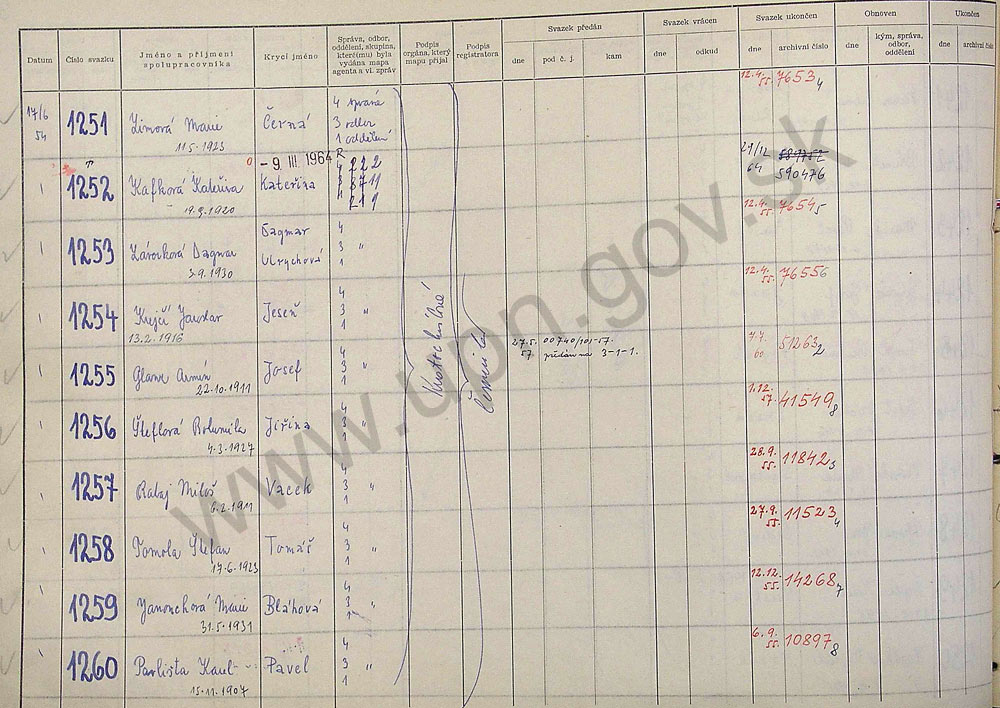 Datum
Číslo svazku
Jméno a příjmení
spolupracovníka
Krycí jméno
Správa, odbor,
oddělení, skupina,
které(mu) byla
vydána mapa
agenta a vl. zpráv
Podpis
orgána, který
mapu přijal
Podpis
registratora
Svazek předán
dne
pod č. j.
kam
Svazek vrácen
dne
odkud
Svazek ukončen
dne
archivní číslo
Obnoven
dne
kým, správa,
odbor,
oddělení
Ukončen
dne
17/6
54
1251
Zimová Marie
11.5.1923
Černá
4 správa
3 odbor
1 oddělení
12.4.
55.
7653 4
1252
0
Kafková Kateřina
19.9.1920
- 9. III. 1964
Kateřina
R
222
8711
219
21/12
64
590476
1253
Dagmar
3.9.1930
Dagmar
Ulrychová
4
3 "
1
12.4.
55.
7654 5
1254
Krejčí Jaroslav
13.2.1916
Jeseň
4
3 "
1
12.4.
55.
7655 6
1255
Armin
22.10.1911
Josef
4
3 "
1
27.5.
57.
předán na 3-1-1.
7.4.
60
51263 2
1256
Šteflová Bohumila
4.3.1927
Jiřina
4
3 "
1
1.12.
57.
41549 8
1257
Miloš
6.2.1911
Vacek
4
3 "
1
28.9.
55.
11842 3
1258
Tomola Štefan
17.6.1923
Tomáš
4
3 "
1
27.9.
55.
11523 4
1259
Marie
31.5.1931
Bláhová
4
3 "
1
12.12.
55.
14268 7
1260
Parlista Karel
15.11.1907
Pavel
4
3 "
1
6.9.
55.
10897 8
www.upn.gov.sk